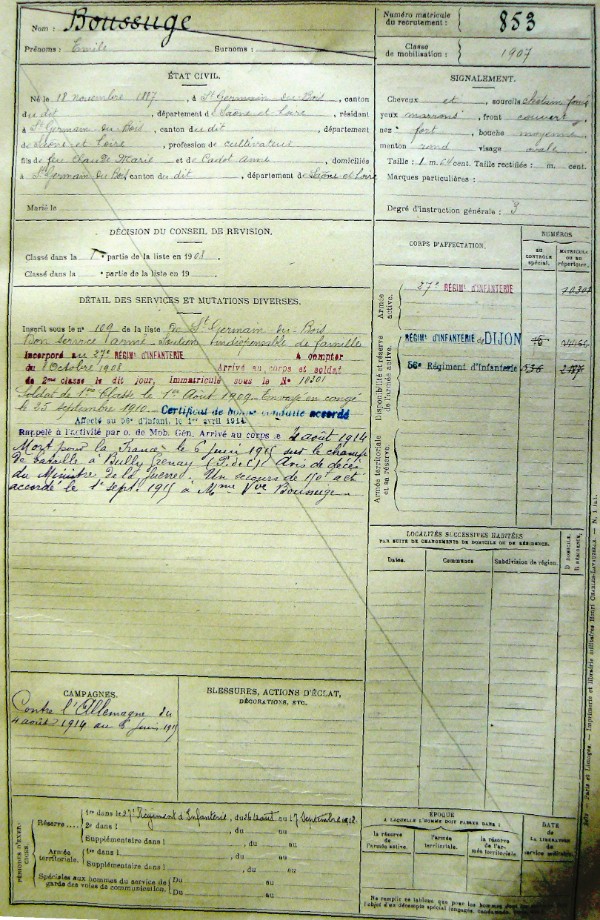 Nom : Boussuge
Prénoms : Emile Surnoms :
Numéro matricule du recrutement : 853
Classe de mobilisation : 1907
ÉTAT CIVIL.
Né le 18 novembre 1887, à St Germain du Bois, canton
du dit, département de Saône-et-Loire, résidant
à St Germain du Bois canton du dit, département
de Saône et Loire, profession de cultivateur
fils de feu Claude Marie et de Cadot Anne, domiciliés
à St Germain du Bois canton du dit, département de Saône et Loire
Marié le
SIGNALEMENT.
Cheveux et sourcils châtain foncé
yeux marrons, front couvert
nez fort, bouche moyenne
menton rond visage ovale
Taille : 1 m. 64 cent. Taille rectifiée : m. cent.
Marques particulières :
Degré d'instruction générale : 3
DÉCISION DU CONSEIL DE RÉVISION.
Classé dans la 1e partie de la liste en 1908
Classé dans la e partie de la liste en 19
DÉTAIL DES SERVICES ET MUTATIONS DIVERSES.
Inscrit sous le n° 109 de la liste de St Germain du Bois
Bon service armé. Soutien indispensable de famille
Incorporé au 27e RÉGIMt D'INFANTERIE A compter
du 8 Octobre 1908 Arrivé au corps et soldat
de 2me classe le dit jour, immatriculé sous le N° 10201
Soldat de 1ère classe le 1er Août 1909. Envoyé en congé
le 25 septembre 1910. Certificat de bonne conduite accordé
Affecté au 56e d'Infant. le 1er avril 1914
Rappelé à l'activité par o. de Mob. Gén. Arrivé au corps le 4 août 1914
Mort pour la France le 6 juin 1915 sur le champ
de bataille à Bully Grenay (P. de C.) Avis de décès
du Ministre de la Guerre. Un secours de 150f a été
accordé le 1er sept. 1915 à Mme Vve Boussuge
CORPS D'AFFECTATION.
NUMÉROS
AU CONTRÔLE spécial.
MATRICULE OU AU répertoire.
Armée active.
27e RÉGIMt D'INFANTERIE
Disponibilité et réserve de l'armée active.
RÉGIMt D'INFANTERIE de DIJON
56e Régiment d'Infanterie
Armée territoriale et sa réserve.
LOCALITÉS SUCCESSIVES HABITÉES
PAR SUITE DE CHANGEMENTS DE DOMICILE OU DE RÉSIDENCE.
Dates. Communes Subdivision de région. D. DOMICILE. R. RÉSIDENCE.
CAMPAGNES.
Contre l'Allemagne du
4 août 1914 au 6 juin 1915
BLESSURES, ACTIONS D'ÉCLAT,
DÉCORATIONS, ETC.
PÉRIODES D'EXERCICES.
Réserve
1re dans le 27e Régiment d'Infanterie, du 26 août au 17 Septembre 1912.
2e dans l , du au
Supplémentaire dans l , du au
Armée territoriale.
1re dans l , du au
Supplémentaire dans l , du au
Spéciales aux hommes du service de garde des voies de communication.
Du au
Du au
ÉPOQUE
A LAQUELLE L'HOMME DOIT PASSER DANS :
la réserve de l'armée active.
l'armée territoriale.
la réserve de l'armée territoriale
DATE
DE LA LIBÉRATION
du service militaire.
Imprimerie et librairie militaires Henri CHARLES-LAVAUZELLE. — N. 1 bis.